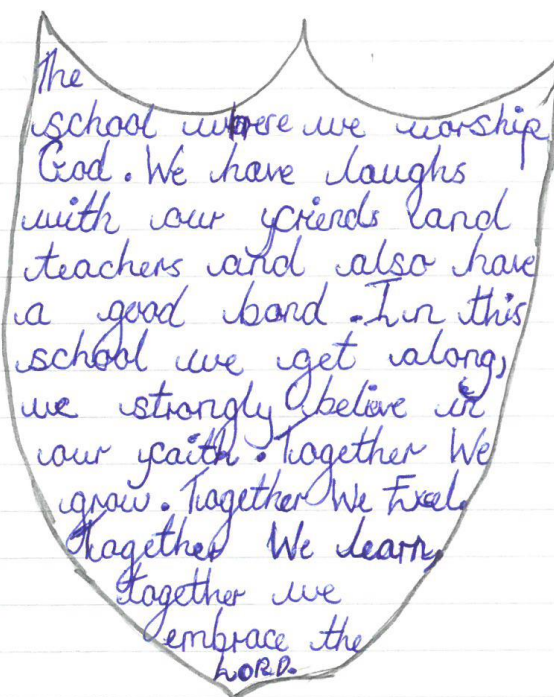 The
school where we worship
God. We have laughs
with our friends and
teachers and also have
a good bond. In this
school we get along,
we strongly believe in
our faith. Together We
grow. Together We Excel.
Together We learn,
together we
embrace the
LORD.